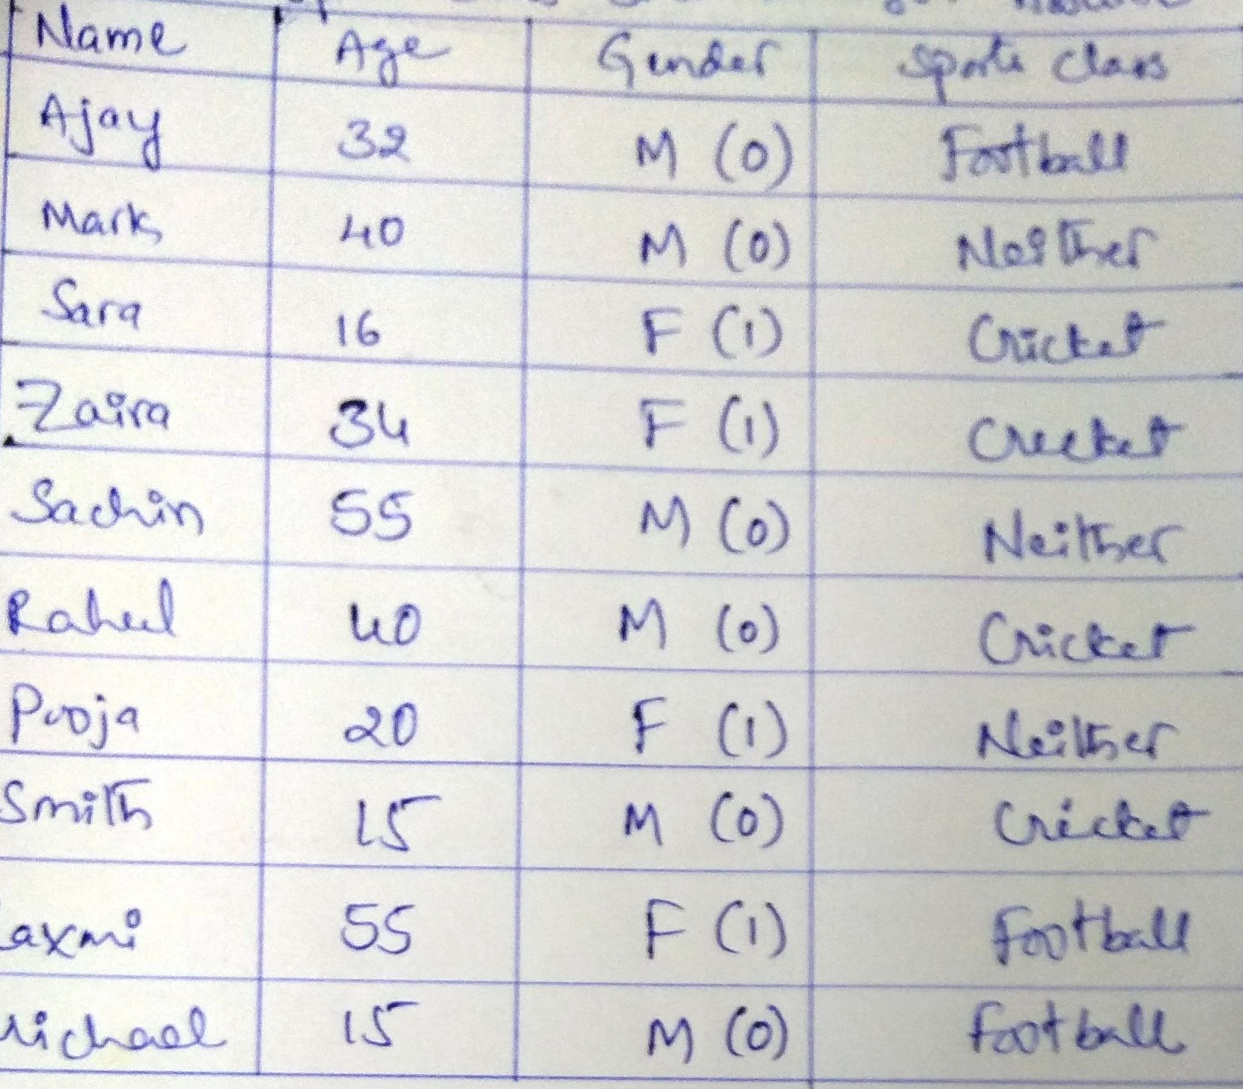 Name Age Gender Sports class
Ajay 32 M (0) Football
Mark 40 M (0) Neither
Sara 16 F (1) Cricket
Zaira 34 F (1) Cricket
Sachin 55 M (0) Neither
Rahul 40 M (0) Cricket
Pooja 20 F (1) Neither
Smith 15 M (0) Cricket
axmi 55 F (1) Football
ichael 15 M (0) Football